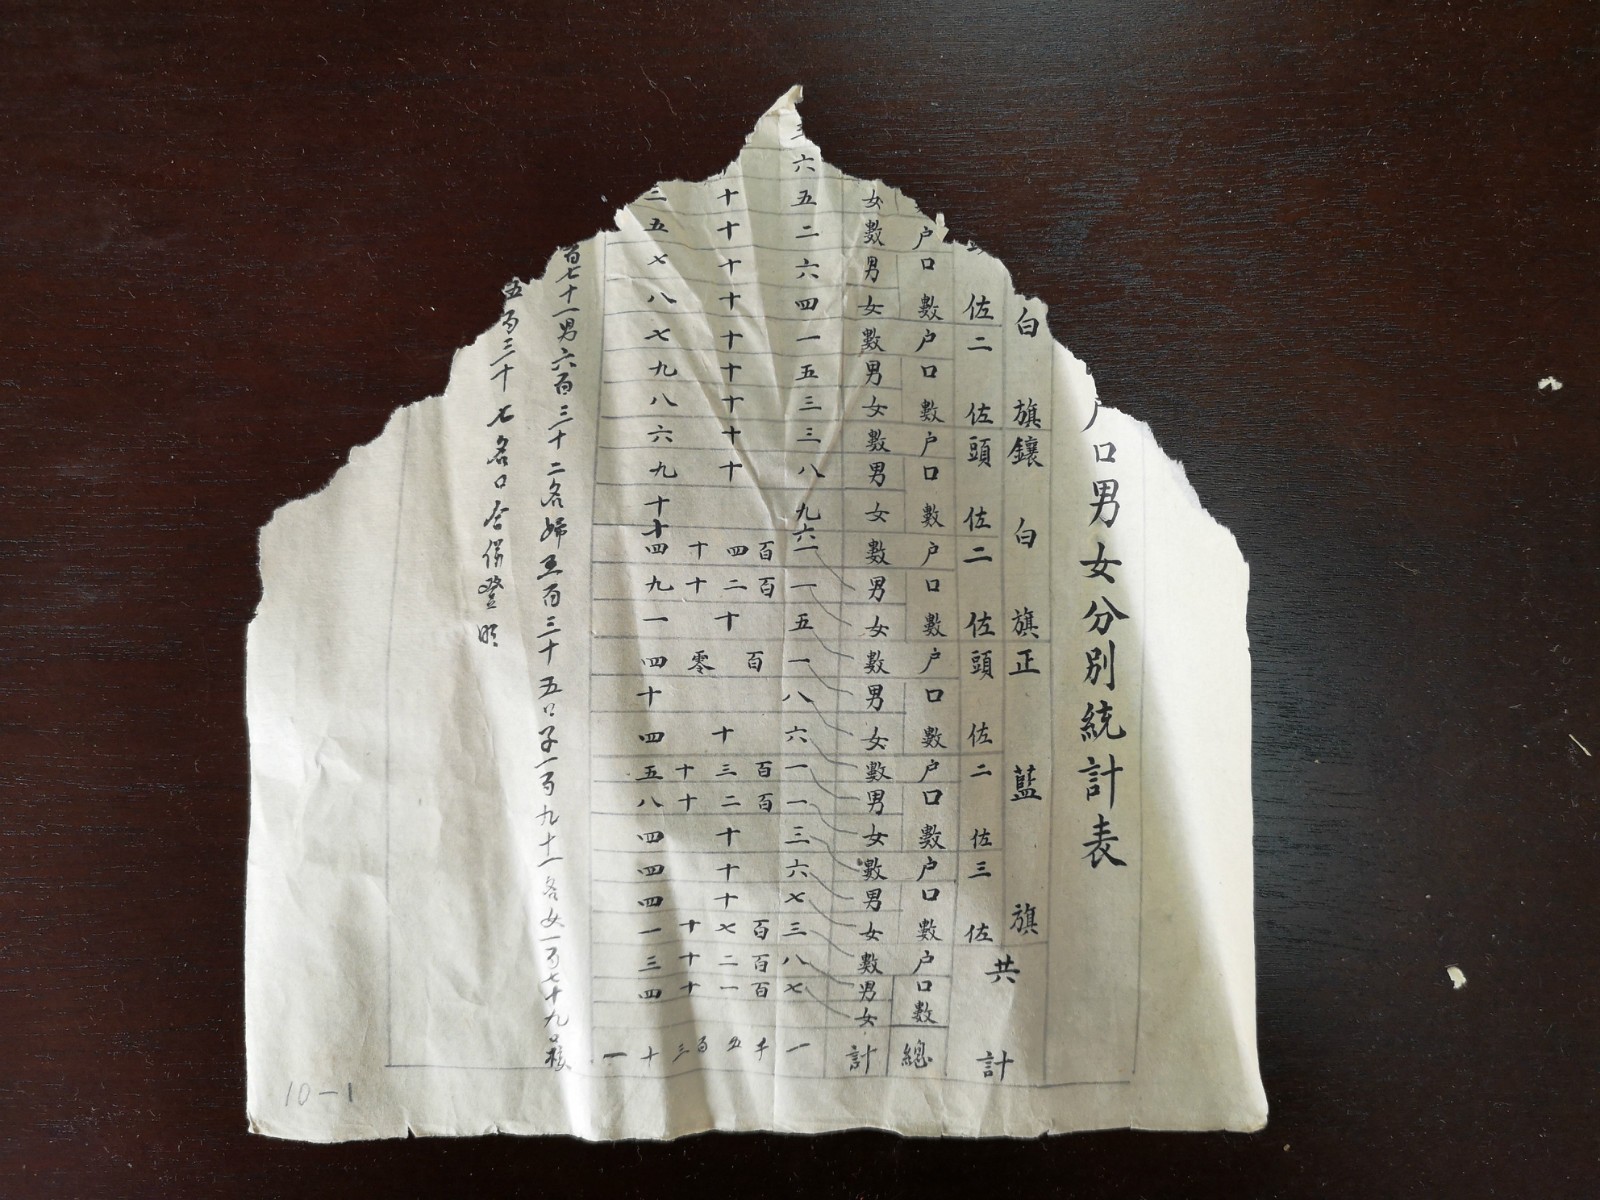 户口男女分別統計表
白旗鑲白旗正藍旗共計
佐二佐頭佐二佐頭佐二佐三佐
户口數户口數户口數户口數户口數户口數户口數總
女數男女數男女數男女數男女數男女數男女數男女數男女計
六五二六四一五三三八九六一一五一八六一一三六七三八七一
十十十十十十十十十四百十二百十十零百十三百十二百十十十十七百十二百十一百千五百三
二五七八七九八六九十十四九一四十四五八四四四一三四十一
百七十一男六百三十二名婦五百三十五口子一百九十一名女一百七十九口核
五百三十七名口合併登明
10-1